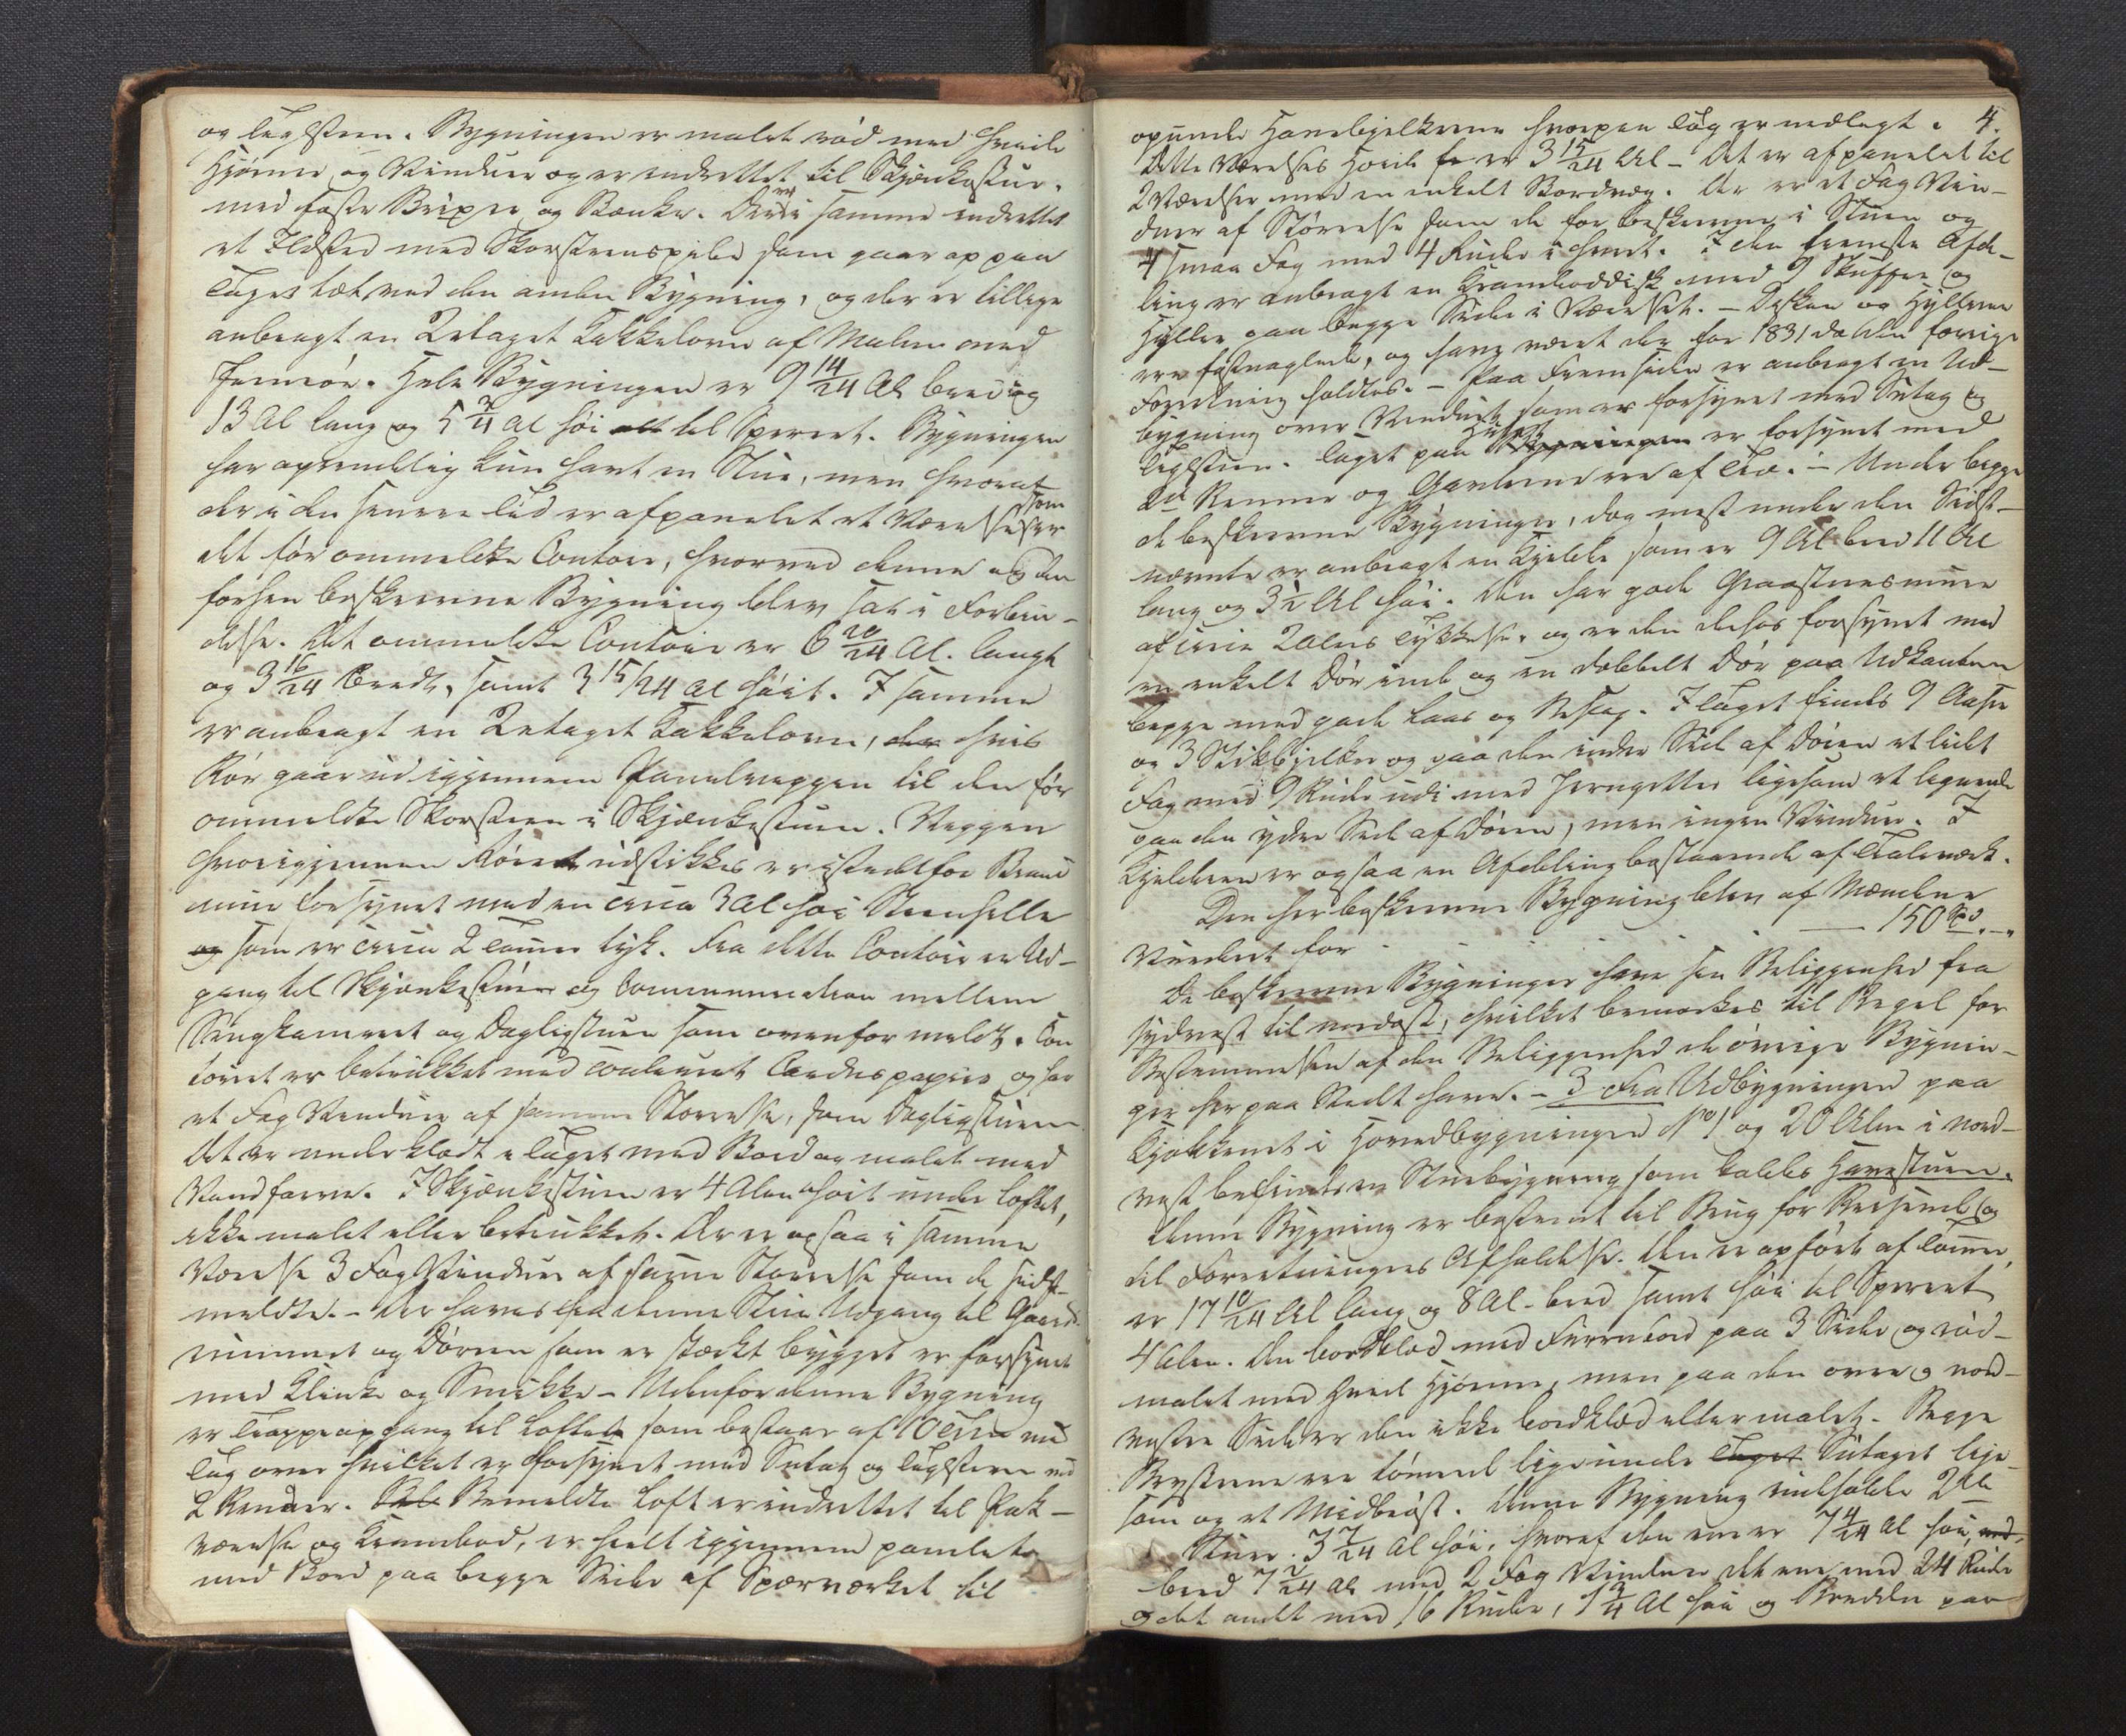 og Taglsteen. Bygningen er malet rød med hvide
Hjørner og Vinduer og er indrettet til Skjænkestue.
med faste Brixer og Bænke. Der er i samme indrettet
et Ildsted med Skorsteenspibe som gaar op paa
Taget tæt ved den anden Bygning, og der er tillige
anbragt en 2etaget Kakkelovn af Malm med
Jernrør. Hele Bygningen er 9 14/24 Al bred og
13 Al lang og 5 3/4 Al høi alt til Sperret. Bygningen
har oprindelig kun havt en Stue, men hvoraf
der i den senere Tid er afpanelet et Værelse som er
det før ommeldte Contoir, hvorved denne og den
forhen beskrevne Bygning blev sat i Forbin-
delse. Det ommeldte Contoir er 6 20/24 Al. langt
og 3 16/24 Bredt, samt 3 15/24 Al høit. I samme
er anbragt en 2etaget Kakkelovn, der hvis
Rør gaar ud igjennem Panelvæggen til den før
ommeldte Skorsteen i Skjænkestuen. Væggen
hvorigjennem Røret udstikkes er istedetfor Brand
muur forsynet med en circa 3 Al høi Steenhelle
og som er circa 2 Tommer tyk. Fra dette Contoir er Ud-
gang til Skjænkestuen og Communication mellem
Sengkamret og Dagligstuen som ovenfor meldt. Con
toiret er betrukket med couleurt Carduspapiir og har
et Fag Vinduer af samme Størrelse, som Dagligstuen
Det er underklædt i Taget med Bord og malet med
Vandfarve. I Skjænkestuen er 4 Alen høit under Loftet,
ikke malet eller betrukket. Der er ogsaa i samme
Værelse 3 Fag Vinduer af samme Størrelse som de sidst-
meldte. - Der haves fra denne Stue Udgang til Gaards-
rummet og Døren som er stærkt bygget er forsynet
med Klinke og Snikke - Udenfor denne Bygning
er Trappeopgang til Loftet som bestaar af 10 Trin med
Tag over hvilket er forsynet med Sutag og Taglsteen med
2 Render. Bemeldte Loft er indrettet til Pak-
værelse og Krambod, er heelt igjennem panelet
med Bord paa begge Sider af Sperværket til
4.
opunder Hanebjelkerne hvorpaa Tag er nedlagt.
Dette Værelses Høide er 3 15/24 Al - Det er afpanelet til
2 Værelser med en enkelt Bordvæg. Der er et Fag Vin-
duer af Størrelse som de før beskrevne i Stuen og
4 smaa Fag med 4 Ruder i hvert. I den fremste Afde-
ling er anbragt en Krambodisk med 9 Skuffer og
Hylder paa begge Sider i Værelset. - Disken og Hylderne
ere fastnaglede, og have været der før 1831 da den forrige
Forretning holdtes. - Paa Fremsiden er anbragt en Ud-
bygning over Vinduet som er forsynet med Sutag og
Taglsteen. Taget paa Huset Bygningen er forsynet med
2de Renner og Gavlerne ere af Træ. - Under begge
de beskrevne Bygninger, dog mest under den Sidst-
nævnte er anbragt en Kjelder som er 9 Al bred 11 Al
lang og 3 1/2 Al høi. Den har gode Graasteensmure
af circa 2 Alens Tykkelse, og er den desos forsynet med
en enkelt Dør inde og en dobbelt Dør paa Udkanten
begge med gode Laas og Beslag. I Taget findes 9 Aaser
og 3 Stikbjelker og paa den indre Side af Døren et lidet
Fag med 9 Ruder udi med Jerngitter ligesom et lignende
paa den ydre Side af Døren, men ingen Vinduer. I
Kjelderen er ogsaa en Afdeling bestaaende af Tialeværk.
Den her beskrevne Bygning blev af Mændene
Vurderet for 150 Spd. „ - „
De beskrevne Bygninger have sin Beliggenhed fra
sydvest til nordost, hvilket bemærkes til Regel for
Bestemmelsen af den Beliggenhed de øvrige Bygnin-
ger her paa Stedt have. - 3 Fra Udbygningen paa
Kjøkkenet i Hovedbygningen No 1 og 20 Alen i nord-
vest befindes en Stuebygning som kaldes Havestuen.
Denne Bygning er bestemt til Brug for Reisende og
til Forretningers Afholdelse. Den er opført af Tømmer,
er 17 10/24 Al lang og 8 Al. bred samt høi til Sperret
4 Alen. Den bordklæd med Furrubord paa 3 Sider og rød-
malet med hvide Hjørner, men paa den øvre og nord-
vestre Side er den ikke bordklæd eller malet. - Begge
Brysterne ere tømrede lige under Taget Sutaget lige-
som og et Midbrøst. Denne Bygning indholder 2de
Stuer. 3 7/24 Al høi, hvoraf den ene er 7 4/24 Al høi, med,
bred 7 2/24 Al med 2 Fag Vinduer det ene med 24 Ruder
og det andet med 16 Ruder, 1 3/4 Al høi og Bredden paa